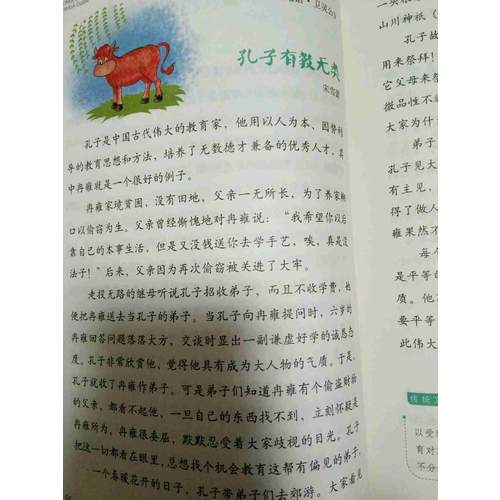 卫灵公》
孔子有教无类
宋雪蕾
孔子是中国古代伟大的教育家，他用以人为本、因势利
导的教育思想和方法，培养了无数德才兼备的优秀人才，其
中冉雍就是一个很好的例子。
冉雍家境贫困，没有田地，父亲一无所长，为了养家糊
口以偷窃为生。父亲曾经惭愧地对冉雍说：“我希望你以后
靠自己的本事生活，但是又没钱送你去学手艺，唉，真是没
法子！”后来，父亲因为再次偷窃被关进了大牢。
走投无路的继母听说孔子招收弟子，而且不收学费，她
便把冉雍送去当孔子的弟子。当孔子向冉雍提问时，六岁的
冉雍回答问题落落大方，交谈时显出一副谦虚好学的诚恳态
度。孔子非常欣赏他，觉得他具有成为大人物的气质。于是，
孔子就收了冉雍作弟子。可是弟子们知道冉雍有个偷盗财物
的父亲，都看不起他，一旦自己的东西找不到，立刻怀疑是
冉雍所为，冉雍很委屈，默默忍受着大家歧视的目光。孔子
把这一切都看在眼里，总想找个机会教育这帮有偏见的弟子。
一个春暖花开的日子，孔子带弟子们去郊游。大家看见
一头
山川神祇（
孔子故
用来祭拜！
它父母来祭
微品性不
大家为什
弟子
孔子见大
有主见，
得了做人
雍果然不
每个
是平等的
质。他
要平等
此伟大
传统文
以受
育对
不分